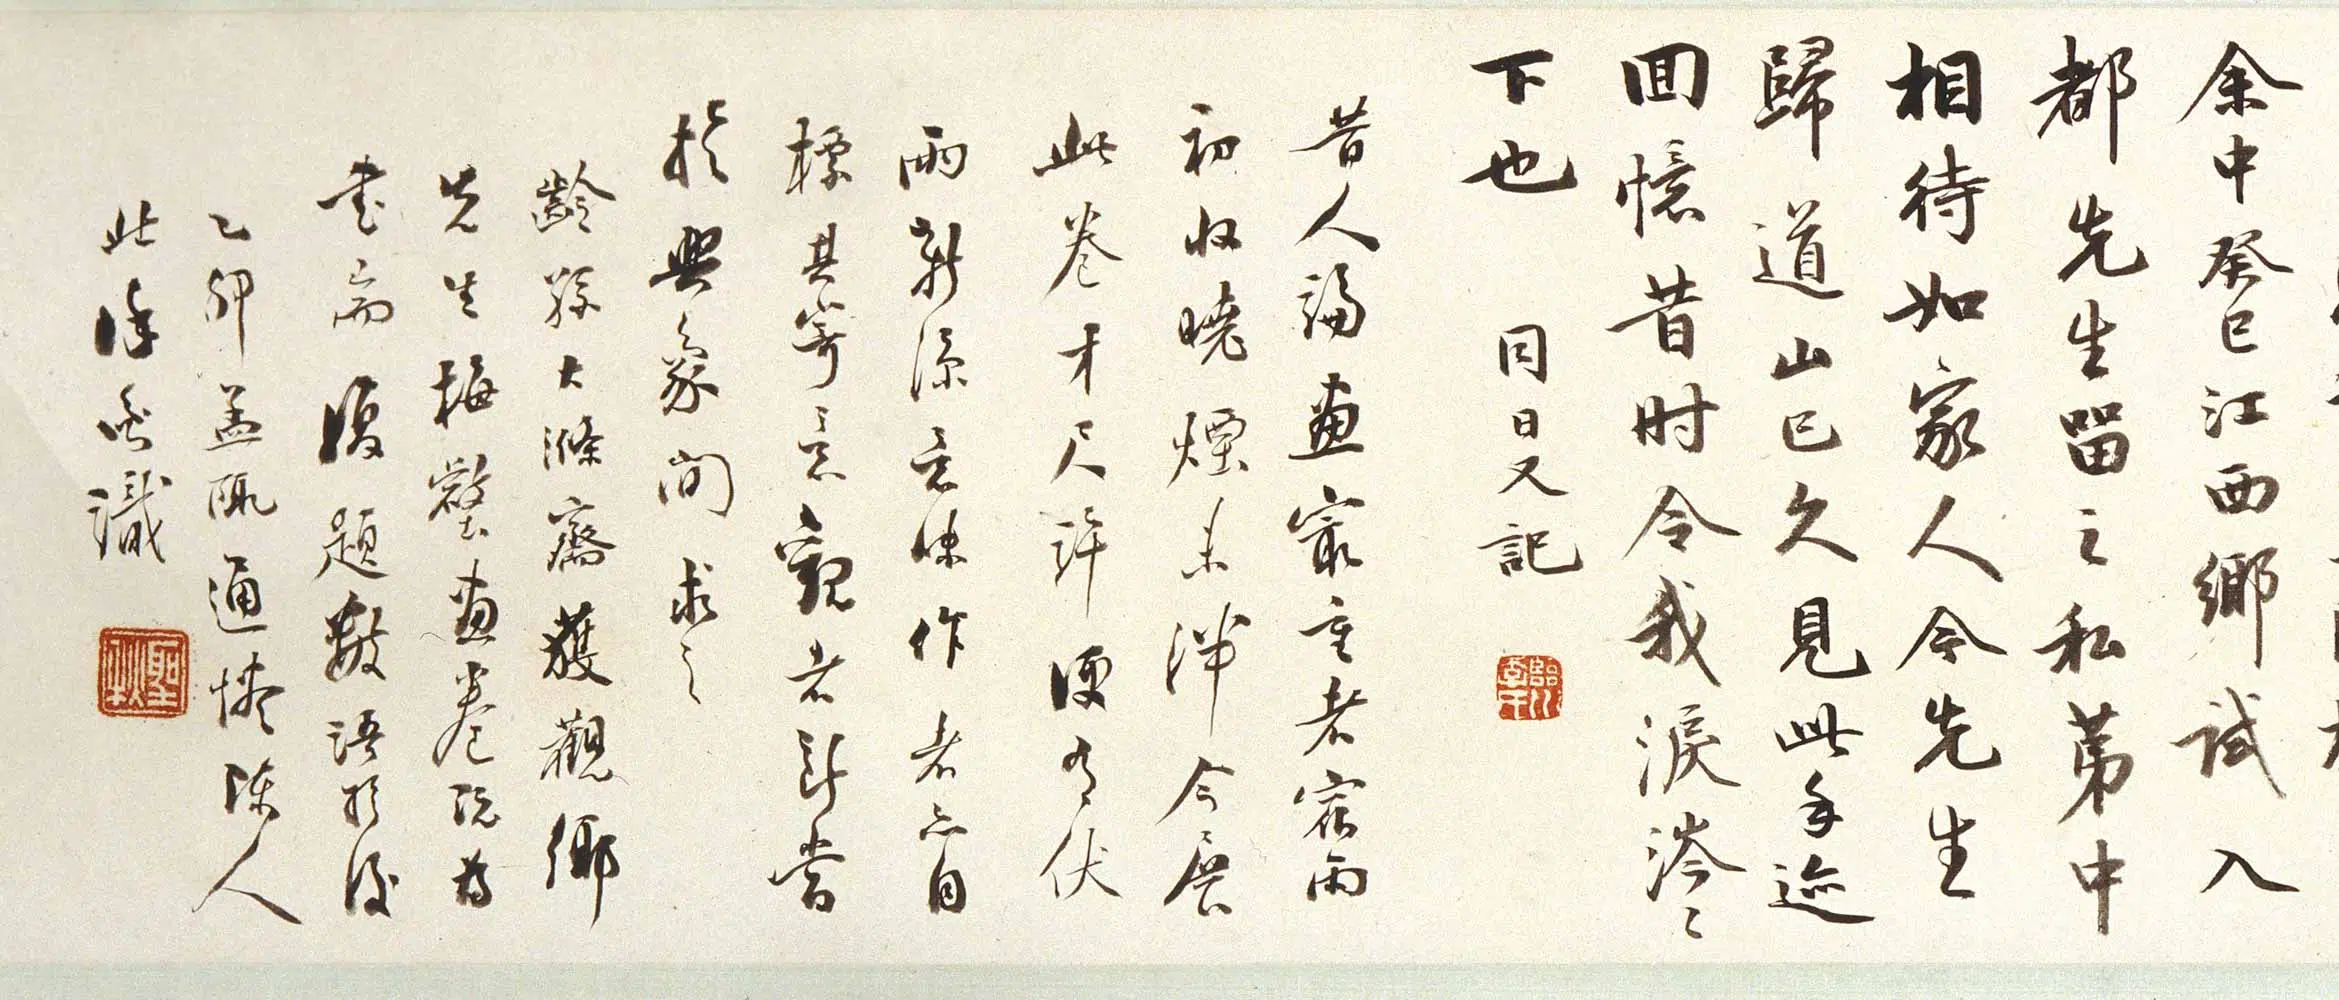 余中癸巳江西鄉試入
都先生留之私第中
相待如家人今先生
歸道山已久見此手迹
回憶昔时令我淚涔〻
下也 同日又記
昔人論畫最重者宿雨
初收曉煙未泮今展
此卷才尺許便有伏
兩新涼意味作者亦自
標其寄意觀者詎當
於興象間求之
齡孫大滌齋獲觀鄉
先生梅壑畫卷既為
書耑復題數語於後
乙卯孟陬通 陳人
此 識